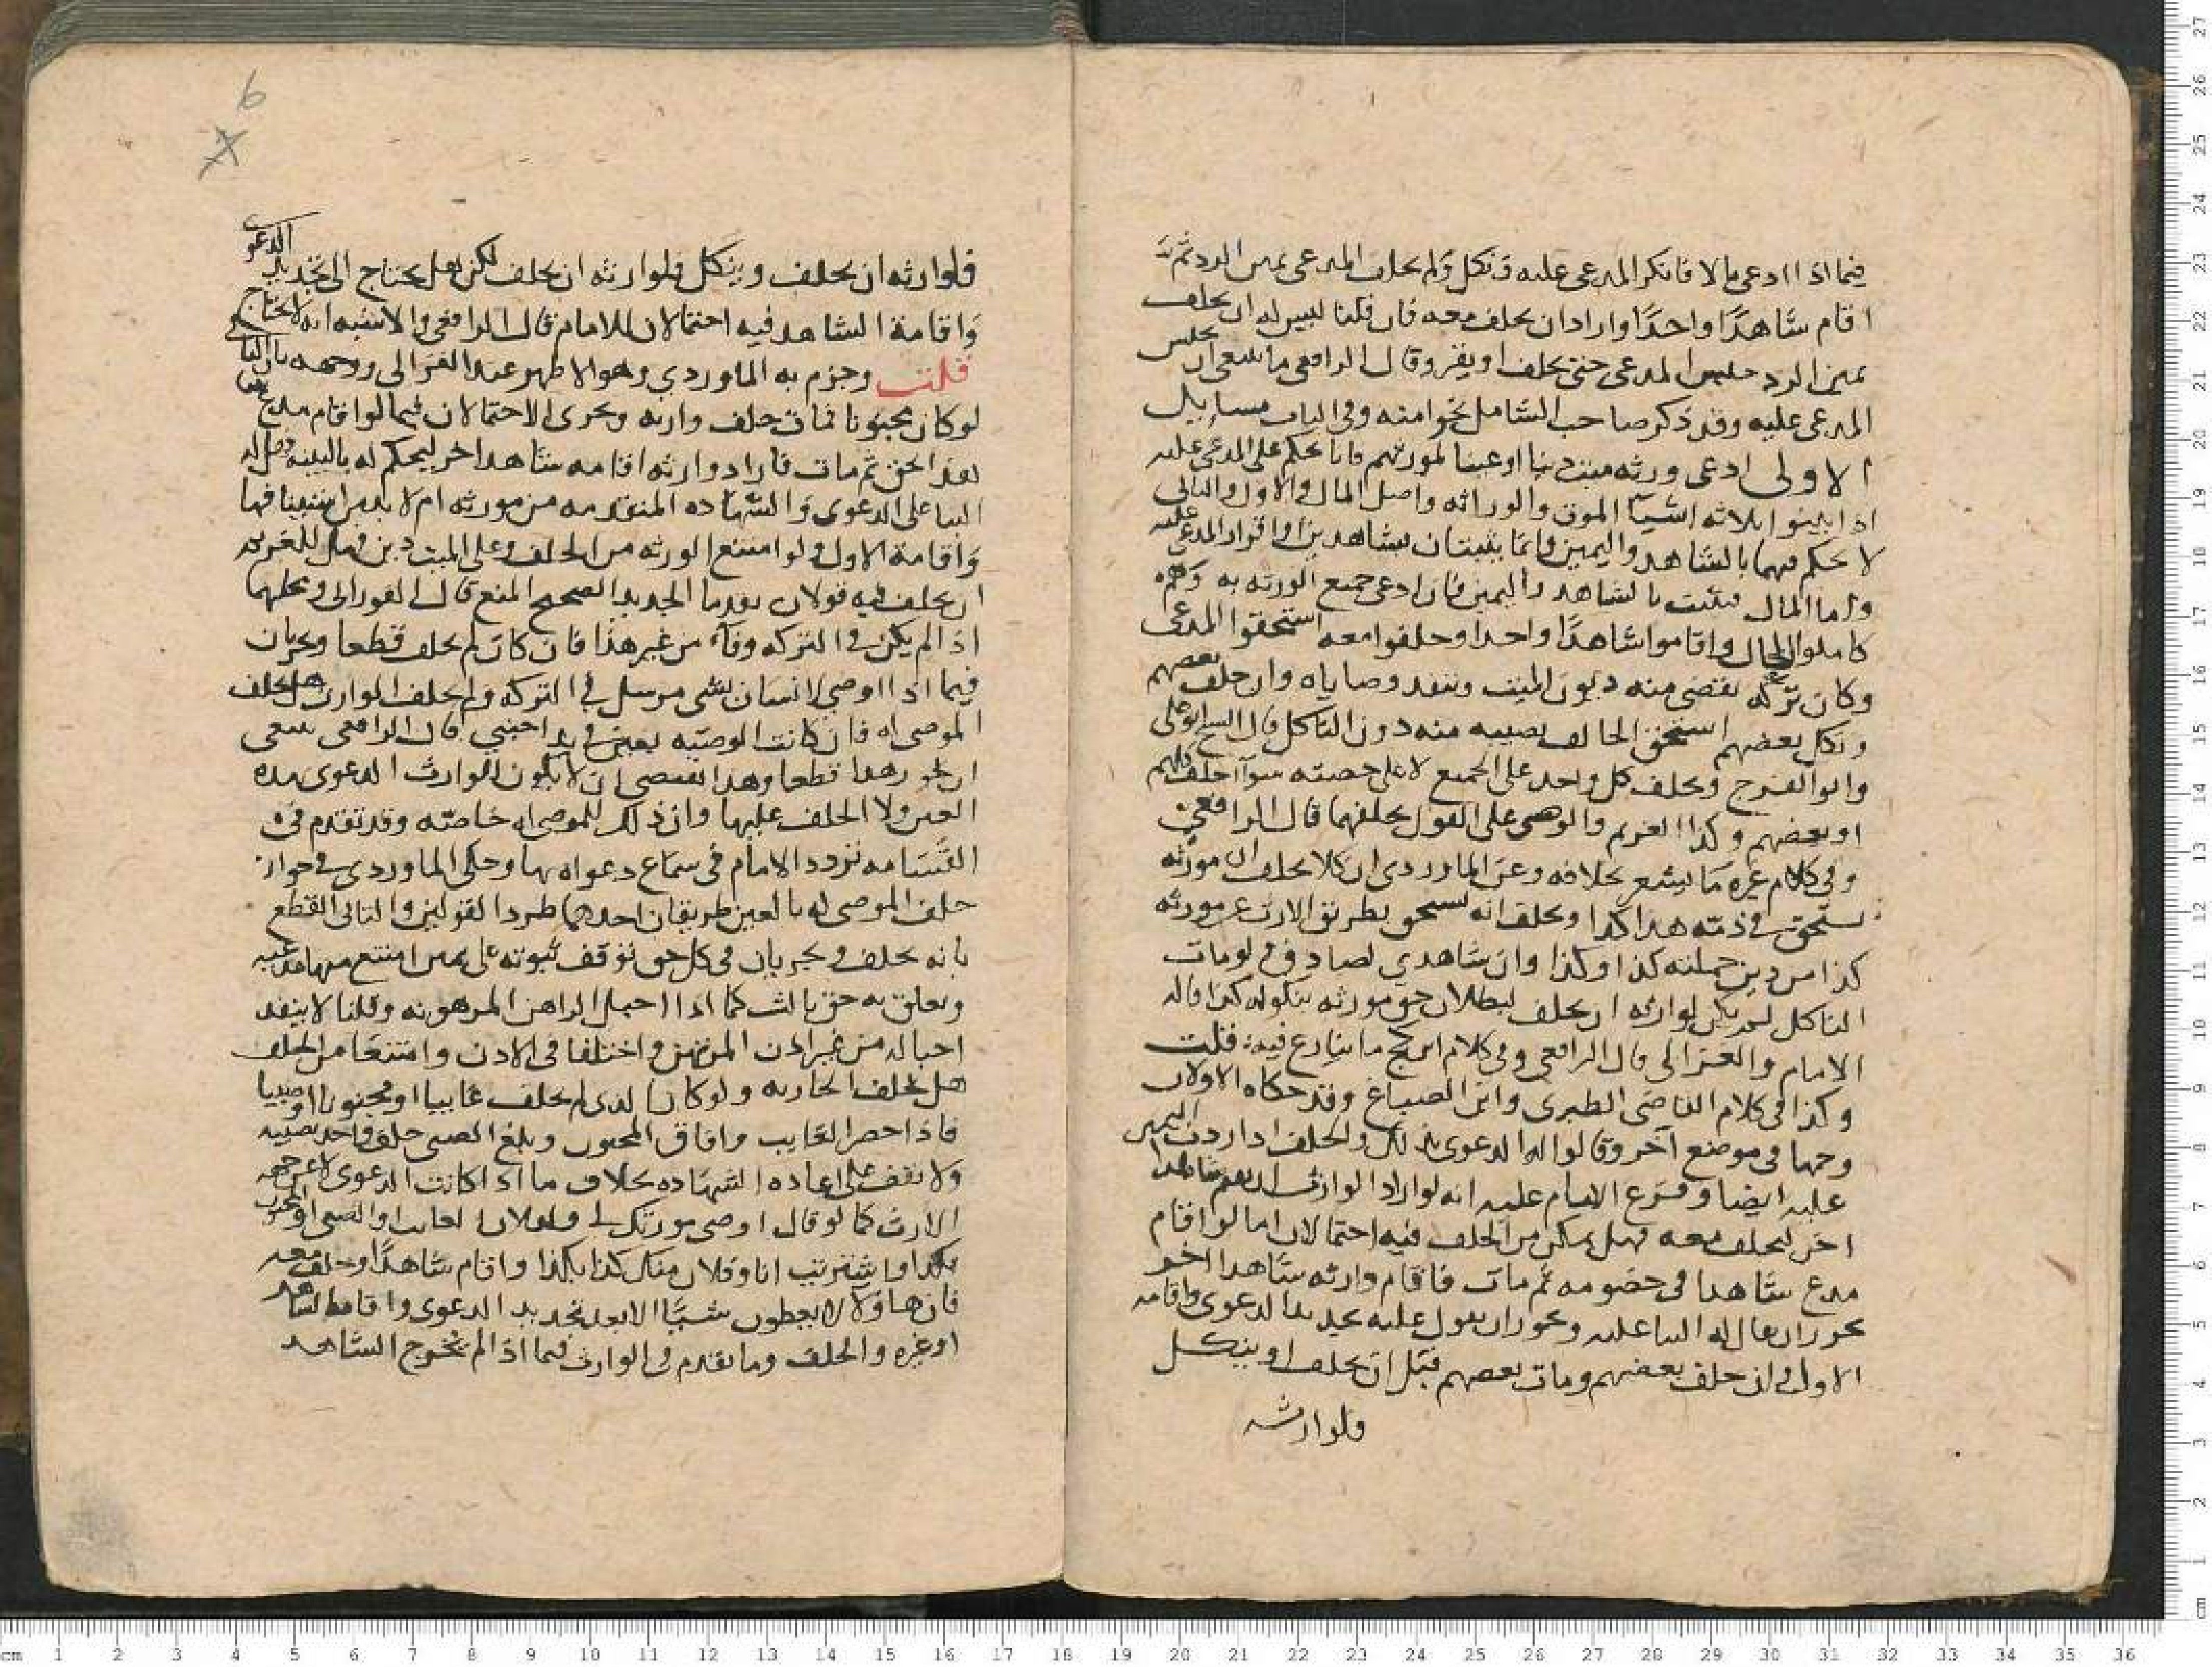 فيما اذا ادعى مالا فانكر المدعى عليه ونكل ولم يحلف المدعى يمين الرد ثم
اقام شاهدًا واحدًا واراد ان يحلف معه فان قلنا ليس له ان يحلف
يمين الرد حبس المدعى حتى يحلف او يقر وقال الرافعي ما ينبغي ان يحبس
المدعى عليه وقد ذكر صاحب الشامل نحوا منه وفي الباب مسايل
الاولى ادعى ورثه ميت دينا او عينا لمورثهم فانا نحكم على المدعى عليه
اذا اثبتوا ثلاثه اشيا الموت والوراثه واصل المال والاول والثاني
لا يحكم فيهما بالشاهد واليمين وانما يثبتان بشاهدين او اقرار المدعى عليه
واما المال فيثبت بالشاهد واليمين فان ادعى جميع الورثه به وهم
كاملوا الحال واقاموا شاهدًا واحدا وحلفوا معه استحقوا المدعى
وكان تركه تقضى منه ديون الميت وتنفد وصاياه وان حلف بعضهم
ونكل بعضهم استحق الحالف نصيبه منه دون الناكل قال الشيخ ابو على
وابو الفرج ويحلف كل واحد على الجميع لا على حصته سوآ احلف كلهم
او بعضهم وكذا الغريم والموصى على القول بحلفهما قال الرافعي
وفي كلام غيره ما يشعر بخلافه وعن الماوردى ان كلا يحلف ان مورثه
يستحق في ذمته هذا كذا ويحلف انه يستحق بطريق الارث عن مورثه
كذا من دين جملته كذا وكذا وان شاهدي لصادق ولو مات
الناكل لم يكن لوارثه ان يحلف لبطلان حق مورثه بنكوله كذا قاله
الامام والغزالى قال الرافعي وفي كلام ابن كج ما ينازع فيه قلت
وكذا في كلام القاضي الطبرى وابن الصباغ وقد حكاه الاولان
وجها في موضع آخر وقالوا له الدعوى بذلك والحلف اذا ردت اليمين
عليه ايضا وفرع الامام عليه انه لو اراد الوارث ان يقيم شاهدا
اخر ليحلف معه فهل يمكن من الحلف فيه احتمالان اما لو اقام
مدع شاهدا في خصومه ثم مات فاقام وارثه شاهدا اخر
يجوز ان يقال له البنا عليه ويجوز ان يقول عليه تجديد الدعوى واقامه
الاول وان حلف بعضهم ومات بعضهم قبل ان يحلف او ينكل
فلوارثه
6
فلوارثه ان يحلف وينكل فلوارثه ان يحلف لكن هل يحتاج الى تجديد الدعوى
واقامة الشاهد فيه احتمالان للامام قال الرافعي والاشبه انه لا يحتاج
قلت وجزم به الماوردي وهو الاظهر عند الغزالى
لو كان مجنونا فمات حلف وارثه ويجرى الاحتمالان فيما لو اقام مدع
بعد الحق ثم مات فاراد وارثه اقامه شاهد اخر ليحكم له بالبينه فهل له
البنا على الدعوى والشهاده المتقدمه من مورثه ام لا بد من استينافها
واقامة الاول ولو امتنع الورثه من الحلف وعلى الميت دين فهل للغريم
ان يحلف فيه قولان الجديد الصحيح المنع قال الفورانى ومحلهما
اذا لم يكن في التركه وفآء من غير هذا فان كان لم يحلف قطعا ويجريان
فيما اذا اوصى لانسان بشى مرسل في التركه ولم يحلف الوارث هل يحلف
الموصى له فان كانت الوصيه بعين في يد اجنبي قال الرافعي ينبغي
ان يجوز هذا قطعا وهذا يقتضي ان لا يكون للوارث الدعوى بهذه
العين ولا الحلف عليها وان ذلك للموصى له خاصته وقد تقدم في
القسامه تردد الامام في سماع دعواه بها وحكى الماوردى في جواز
حلف الموصى له بالعين طريقان احدهما طرد القولين والثانى القطع
بانه يحلف ويجريان في كل حق توقف ثبوته على يمين امتنع منها مدعيه
وتعلق به حق ثالث كما اذا احبل الراهن المرهونه وقلنا لا ينفذ
احباله من غير اذن المرتهن واختلفا في الاذن وامتنعا من الحلف
هل تحلف الجاريه ولو كان الذى لم يحلف غايبا او مجنونا او صبيا
فاذا حضر الغايب وافاق المجنون وبلغ الصبى حلف واخد نصيبه
ولا يقف على اعاده الشهاده بخلاف ما اذا كانت الدعوى لا عن جهه
الارث كما لو قال اوصى مورثك لى ولفلان الغايب او الصبى او المجنون
بكذا او اشتريت انا وفلان منك كذا بكذا واقام شاهدًا وحلف معه
فان هاؤلا لا يعطون شيئًا الا بعد تجديد الدعوى واقامة الشاهد
او غيره والحلف وما تقدم في الوارث فيما اذا لم يخرج الشاهد